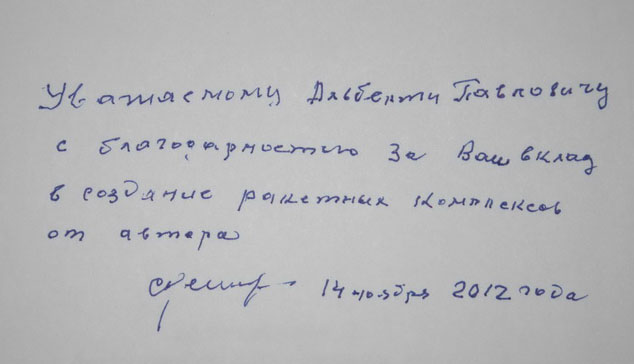 Уважаемому Альберту Павловичу
с благодарностью за Ваш вклад
в создание ракетных комплексов
от автора
14 ноября 2012 года